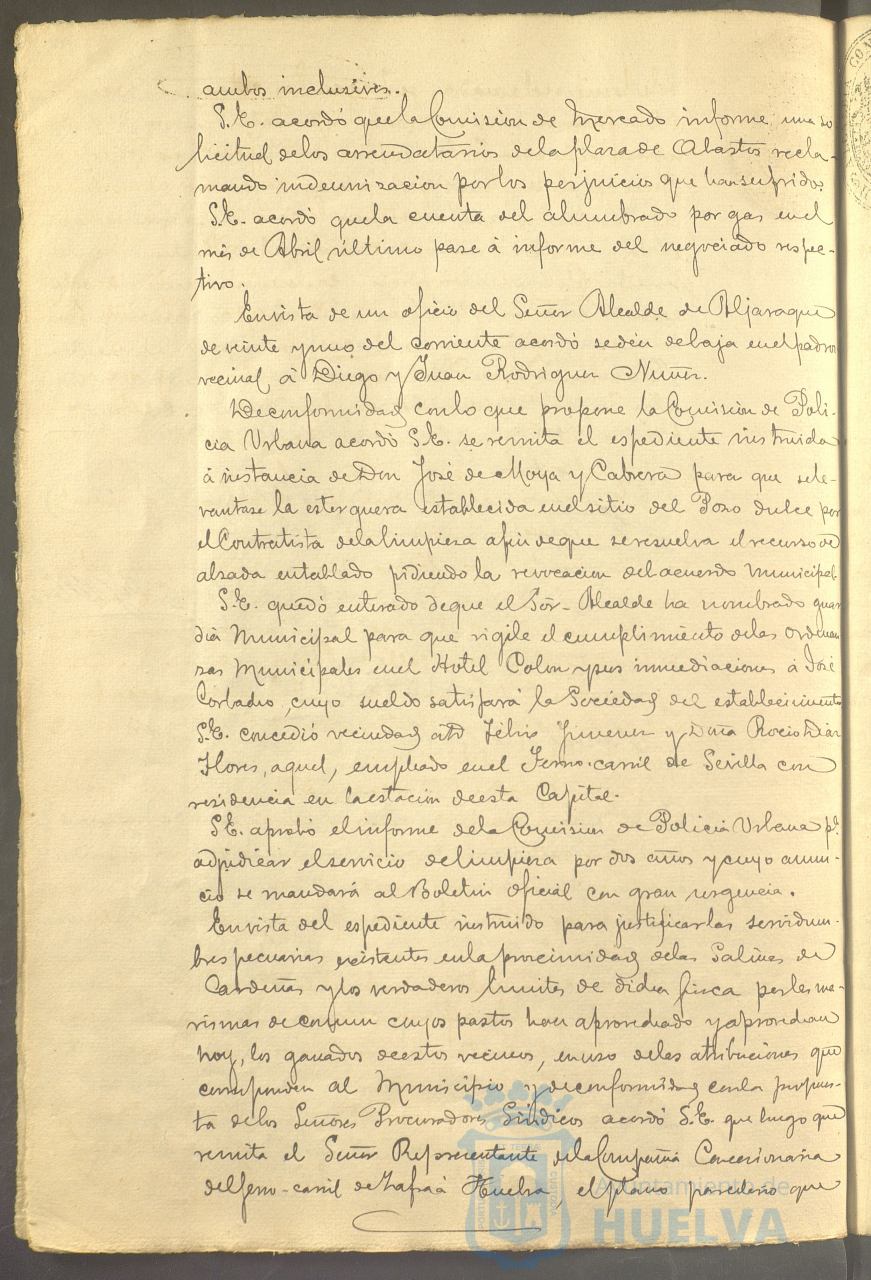 ambos inclusives.
S.E. acordó que la Comision de Mercado informe una so
licitud de los arrendatarios de la plaza de Abastos recla-
mando indemnizacion por los perjuicios que han sufrido.
S.E. acordó que la cuenta del alumbrado por gas en el
més de Abril último pase á informe del negociado respec-
tivo.
En vista de un oficio del Señor Alcalde de Aljaraque
de veinte y uno del corriente acordó se dén de baja en el padron
vecinal á Diego y Juan Rodriguez Nuñez.
De conformidad con lo que propone la Comision de Poli-
cia Urbana acordó S.E. se remita el espediente instruido
á instancia de Don José de Moya y Cabrera para que se le-
vantase la esterquera establecida en el sitio del Pozo dulce por
el Contratista de la limpieza a fin de que se resuelva el recurso de
alzada entablado pidiendo la revocacion del acuerdo municipal.
S.E. quedó enterado de que el Sór. Alcalde ha nombrado guar
dia Municipal para que vigile el cumplimiento de las Ordenan
zas Municipales en el Hotel Colon y sus inmediaciones á José
cuyo sueldo satisfará la Sociedad del establecimiento
S.E. concedió vecindad á D Félix Jimenez y Doña Rocio Diaz
Flores, aquel, empleado en el Ferro-carril de Sevilla con
residencia en la estacion de esta Capital.
S.E. aprobó el informe de la Comision de Policia Urbana pª
adjudicar el servicio de limpieza por dos años y cuyo anun-
cio se mandará al Boletin oficial con gran urgencia.
En vista del espediente instruido para justificar las servidum-
bres pecuarias existentes en la procsimidad de las Salinas de
Cardeñas y los verdaderos limites de dicha finca por las ma-
rismas de comun cuyos pastos han aprovechado y aprovechan
hoy, los ganados de estos vecinos, en uso de las atribuciones que
corresponden al Municipio y de conformidad con la propues-
ta de los Señores Procuradores Sindicos acordó S.E. que luego que
remita el Señor Representante de la Compañia Concesionaria
del ferro-carril de Zafra á Huelva, el plano parcelario que
Ayuntamiento de
HUELVA